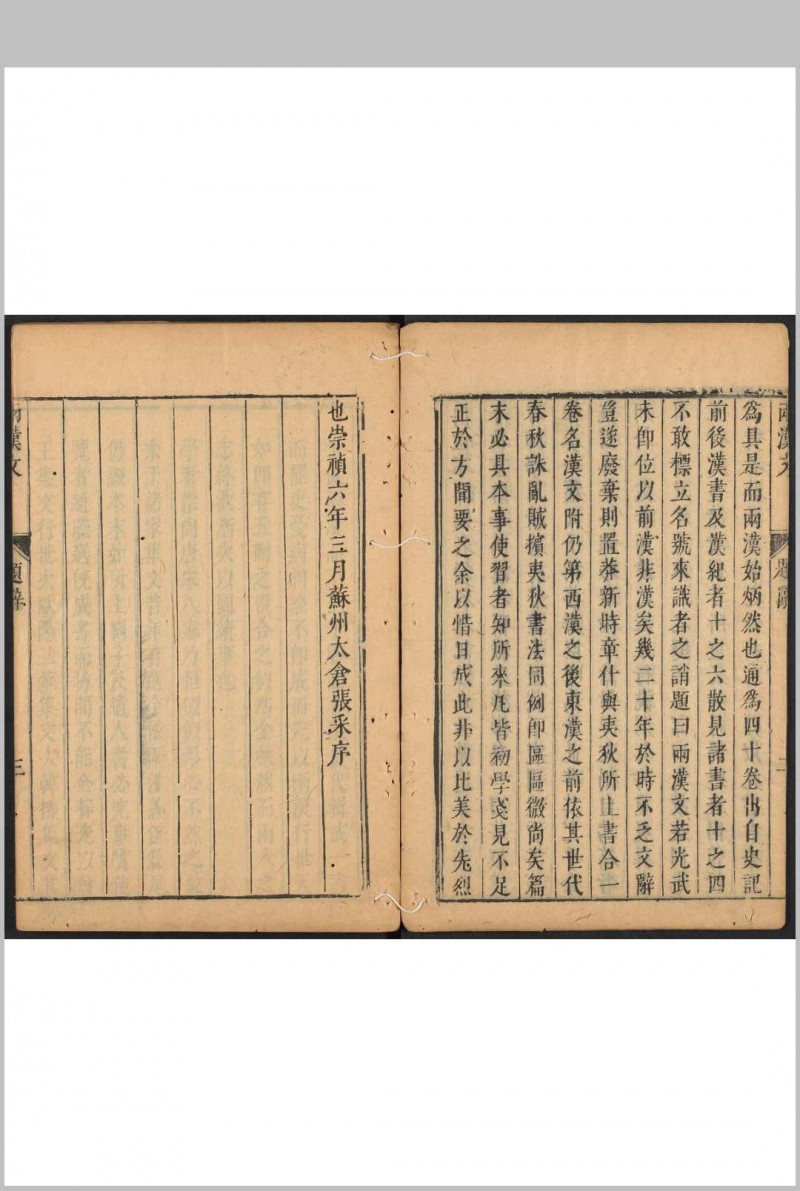 兩漢文
題辭
爲具是而兩漢始炳然也通爲四十卷出自史記
前後漢書及漢紀者十之六散見諸書者十之四
不敢標立名號來識者之誚題曰兩漢文若光武
未卽位以前漢非漢矣幾二十年於時不乏文辭
豈遂廢棄則置莽新時章什與夷狄所上書合一
卷名漢文附仍第西漢之後東漢之前依其世代
春秋誅亂賊擯夷狄書法同例卽區區微尚矣篇
末必具本事使習者知所來凡皆初學戔見不足
正於方聞要之余以惜日成此非以比美於先烈
也崇禎六年三月蘇州太倉張采序
兩漢文
題辭
三